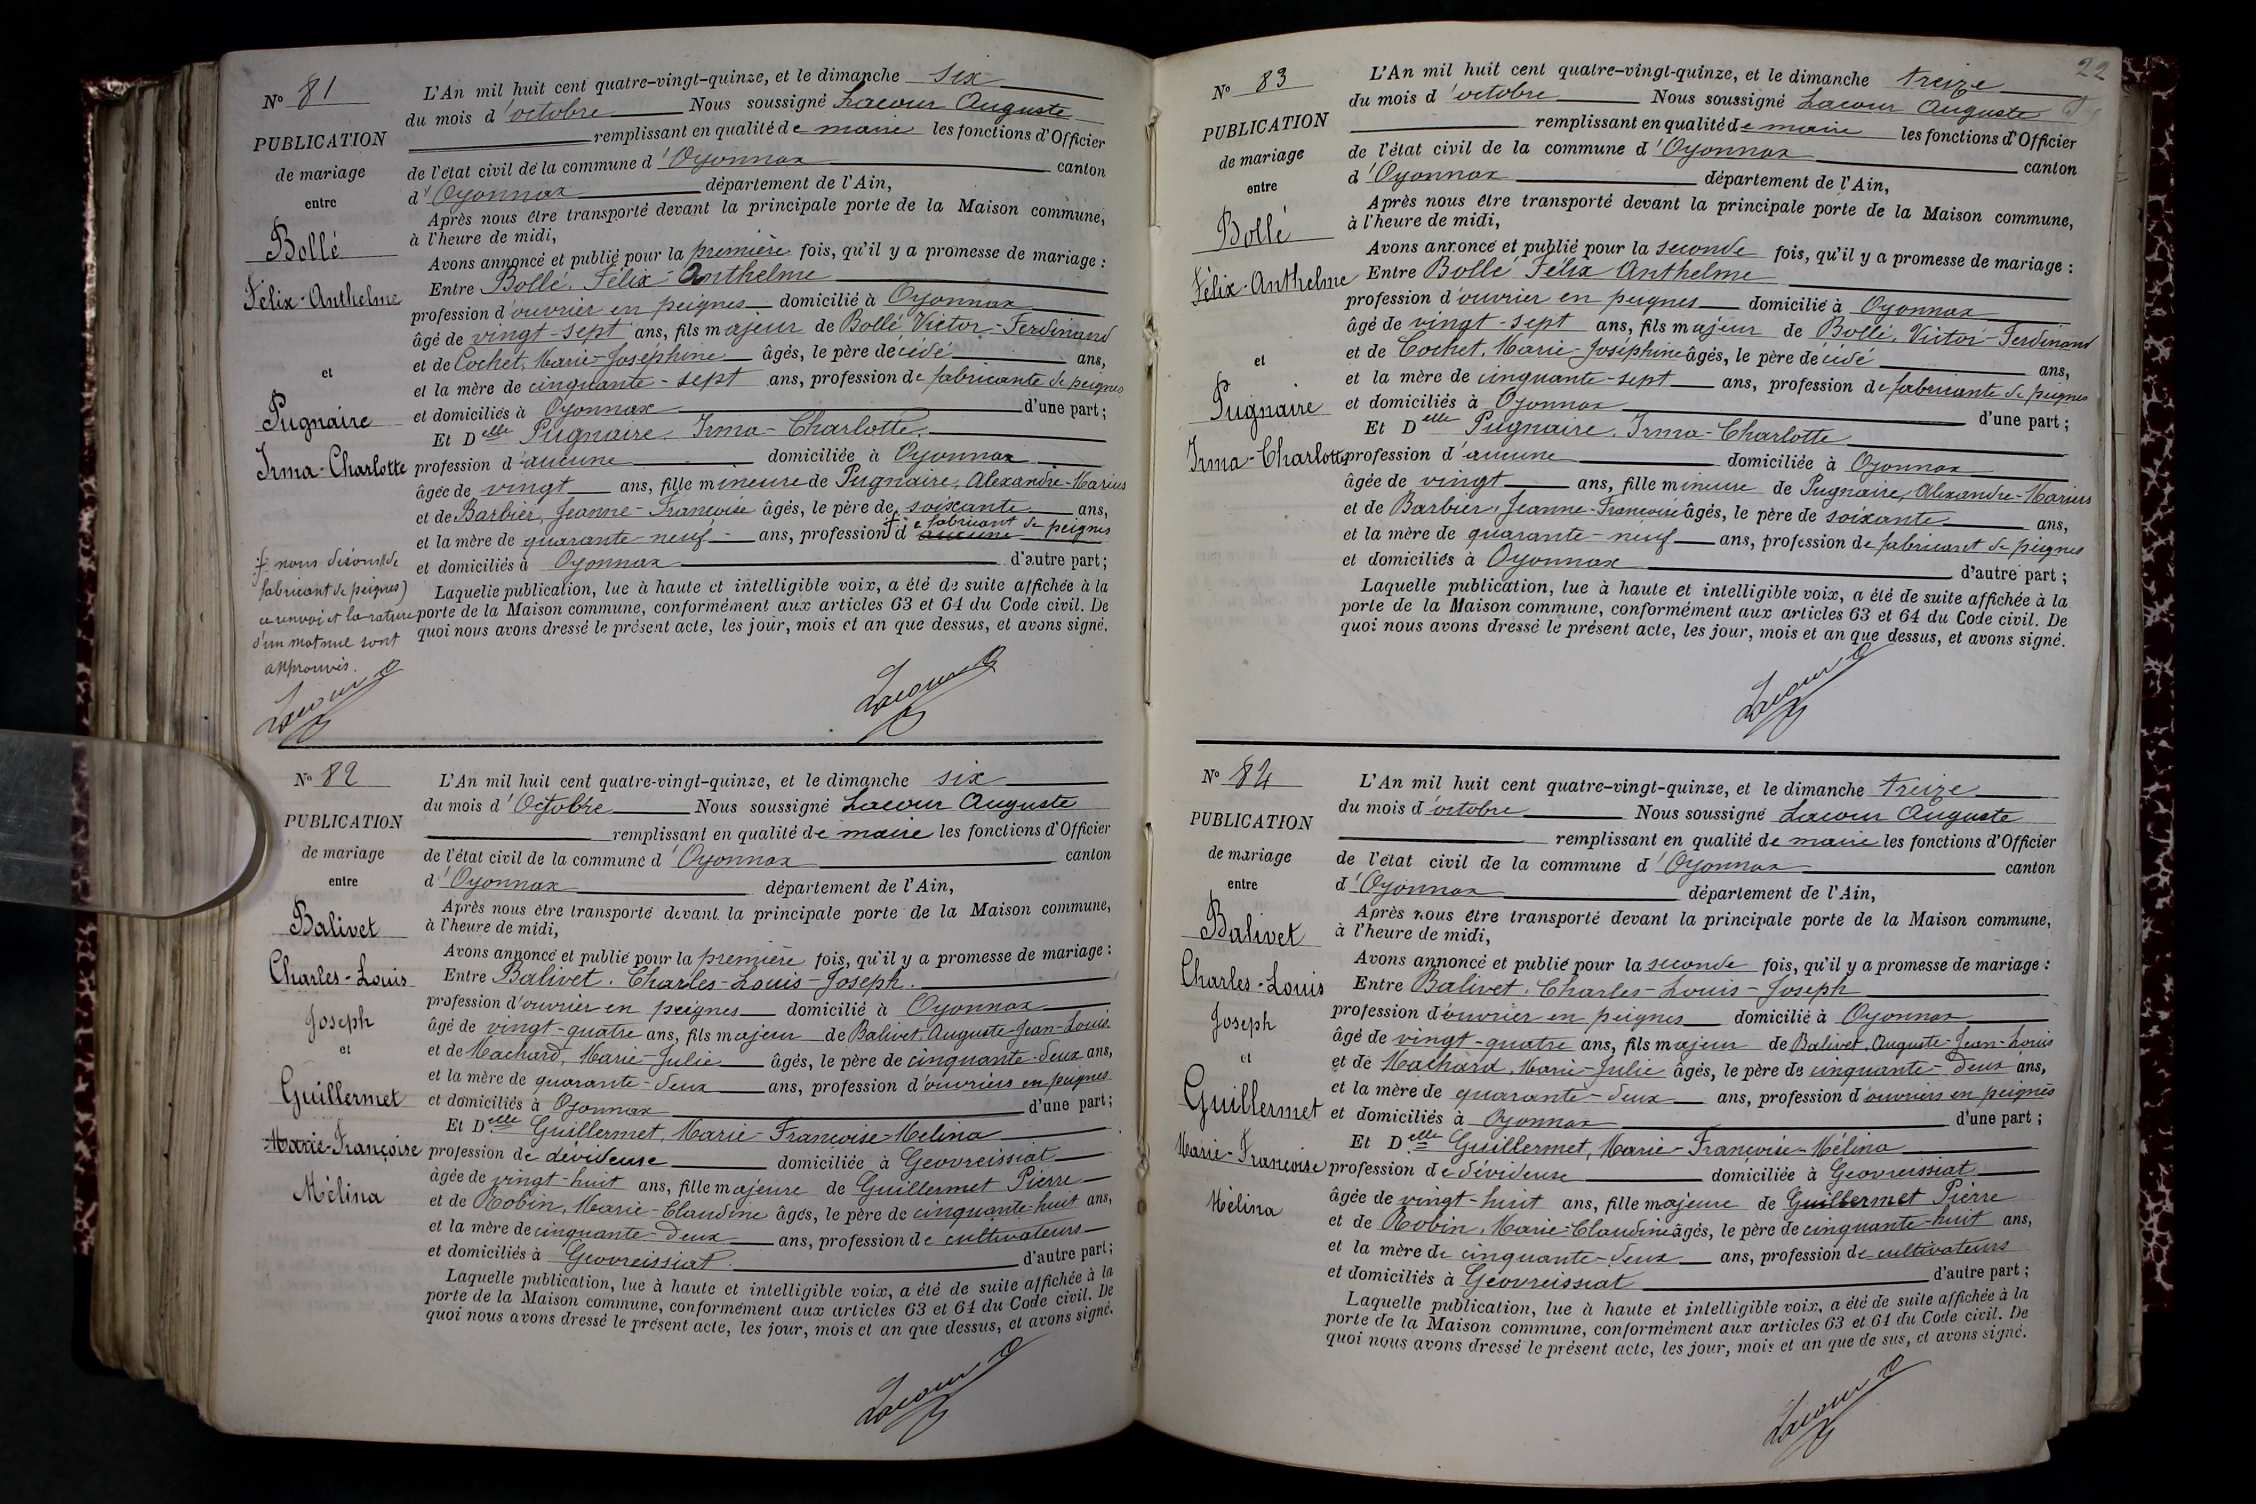 N° 81
PUBLICATION
de mariage
entre
Bollé
Félix-Anthelme
et
Pugnaire
Irma-Charlotte
L'An mil huit cent quatre-vingt-quinze, et le dimanche six
du mois d'octobre Nous soussigné Lacour Auguste
remplissant en qualité de maire les fonctions d'Officier
de l'état civil de la commune d'Oyonnax canton
d'Oyonnax département de l'Ain,
Après nous être transporté devant la principale porte de la Maison commune,
à l'heure de midi,
Avons annoncé et publié pour la première fois, qu'il y a promesse de mariage :
Entre Bollé, Félix-Anthelme
profession d'ouvrier en peignes domicilié à Oyonnax
âgé de vingt-sept ans, fils majeur de Bollé Victor-Ferdinand
et de Cochet, Marie-Joséphine âgés, le père décédé ans,
et la mère de cinquante-sept ans, profession de fabricante de peignes
et domiciliés à Oyonnax d'une part;
Et Delle Pugnaire, Irma-Charlotte.
profession d'aucune domiciliée à Oyonnax
âgée de vingt ans, fille mineure de Pugnaire, Alexandre-Marius
et de Barbier, Jeanne-Françoise âgés, le père de soixante ans,
et la mère de quarante-neuf ans, profession d'aucune de fabricant de peignes
et domiciliés à Oyonnax d'autre part;
Laquelle publication, lue à haute et intelligible voix, a été de suite affichée à la
porte de la Maison commune, conformément aux articles 63 et 64 du Code civil. De
quoi nous avons dressé le présent acte, les jour, mois et an que dessus, et avons signé.
nous disons (de
fabricant de peignes)
ce renvoi et la rature
d'un mot nul sont
approuvés.
Lacour A
Lacour A
N° 82
PUBLICATION
de mariage
entre
Balivet
Charles-Louis
Joseph
et
Guillermet
Marie-Françoise
Mélina
L'An mil huit cent quatre-vingt-quinze, et le dimanche six
du mois d'Octobre Nous soussigné Lacour Auguste
remplissant en qualité de maire les fonctions d'Officier
de l'état civil de la commune d'Oyonnax canton
d'Oyonnax département de l'Ain,
Après nous être transporté devant la principale porte de la Maison commune,
à l'heure de midi,
Avons annoncé et publié pour la première fois, qu'il y a promesse de mariage :
Entre Balivet, Charles-Louis-Joseph.
profession d'ouvrier en peignes domicilié à Oyonnax
âgé de vingt-quatre ans, fils majeur de Balivet, Auguste-Jean-Louis
et de Machard, Marie-Julie âgés, le père de cinquante-deux ans,
et la mère de quarante-deux ans, profession d'ouvriers en peignes
et domiciliés à Oyonnax d'une part;
Et Delle Guillermet, Marie-Françoise-Mélina
profession de dévideuse domiciliée à Geovreissiat
âgée de vingt-huit ans, fille majeure de Guillermet Pierre
et de Robin, Marie-Claudine âgés, le père de cinquante-huit ans,
et la mère de cinquante-deux ans, profession de cultivateurs
et domiciliés à Geovreissiat. d'autre part;
Laquelle publication, lue à haute et intelligible voix, a été de suite affichée à la
porte de la Maison commune, conformément aux articles 63 et 64 du Code civil. De
quoi nous avons dressé le présent acte, les jour, mois et an que dessus, et avons signé.
Lacour A
22
N° 83
PUBLICATION
de mariage
entre
Bollé
Félix-Anthelme
et
Pugnaire
Irma-Charlotte
L'An mil huit cent quatre-vingt-quinze, et le dimanche treize
du mois d'octobre Nous soussigné Lacour Auguste
remplissant en qualité de maire les fonctions d'Officier
de l'état civil de la commune d'Oyonnax canton
d'Oyonnax département de l'Ain,
Après nous être transporté devant la principale porte de la Maison commune,
à l'heure de midi,
Avons annoncé et publié pour la seconde fois, qu'il y a promesse de mariage :
Entre Bollé Félix Anthelme
profession d'ouvrier en peignes domicilié à Oyonnax
âgé de vingt-sept ans, fils majeur de Bollé, Victor-Ferdinand
et de Cochet, Marie-Joséphine âgés, le père décédé ans,
et la mère de cinquante-sept ans, profession de fabricante de peignes
et domiciliés à Oyonnax d'une part;
Et Delle Pugnaire, Irma-Charlotte
profession d'aucune domiciliée à Oyonnax
âgée de vingt ans, fille mineure de Pugnaire, Alexandre-Marius
et de Barbier, Jeanne-Françoise âgés, le père de soixante ans,
et la mère de quarante-neuf ans, profession de fabricant de peignes
et domiciliés à Oyonnax d'autre part;
Laquelle publication, lue à haute et intelligible voix, a été de suite affichée à la
porte de la Maison commune, conformément aux articles 63 et 64 du Code civil. De
quoi nous avons dressé le présent acte, les jour, mois et an que dessus, et avons signé.
Lacour A
N° 84
PUBLICATION
de mariage
entre
Balivet
Charles-Louis
Joseph
et
Guillermet
Marie-Françoise
Mélina
L'An mil huit cent quatre-vingt-quinze, et le dimanche treize
du mois d'octobre Nous soussigné Lacour Auguste
remplissant en qualité de maire les fonctions d'Officier
de l'état civil de la commune d'Oyonnax canton
d'Oyonnax département de l'Ain,
Après nous être transporté devant la principale porte de la Maison commune,
à l'heure de midi,
Avons annoncé et publié pour la seconde fois, qu'il y a promesse de mariage :
Entre Balivet, Charles-Louis-Joseph
profession d'ouvrier en peignes domicilié à Oyonnax
âgé de vingt-quatre ans, fils majeur de Balivet, Auguste-Jean-Louis
et de Machard, Marie-Julie âgés, le père de cinquante-deux ans,
et la mère de quarante-deux ans, profession d'ouvriers en peignes
et domiciliés à Oyonnax d'une part;
Et Delle Guillermet, Marie-Françoise-Mélina
profession de dévideuse domiciliée à Geovreissiat
âgée de vingt-huit ans, fille majeure de Guillermet Pierre
et de Robin, Marie-Claudine âgés, le père de cinquante-huit ans,
et la mère de cinquante-deux ans, profession de cultivateurs
et domiciliés à Geovreissiat d'autre part;
Laquelle publication, lue à haute et intelligible voix, a été de suite affichée à la
porte de la Maison commune, conformément aux articles 63 et 64 du Code civil. De
quoi nous avons dressé le présent acte, les jour, mois et an que de sus, et avons signé.
Lacour A